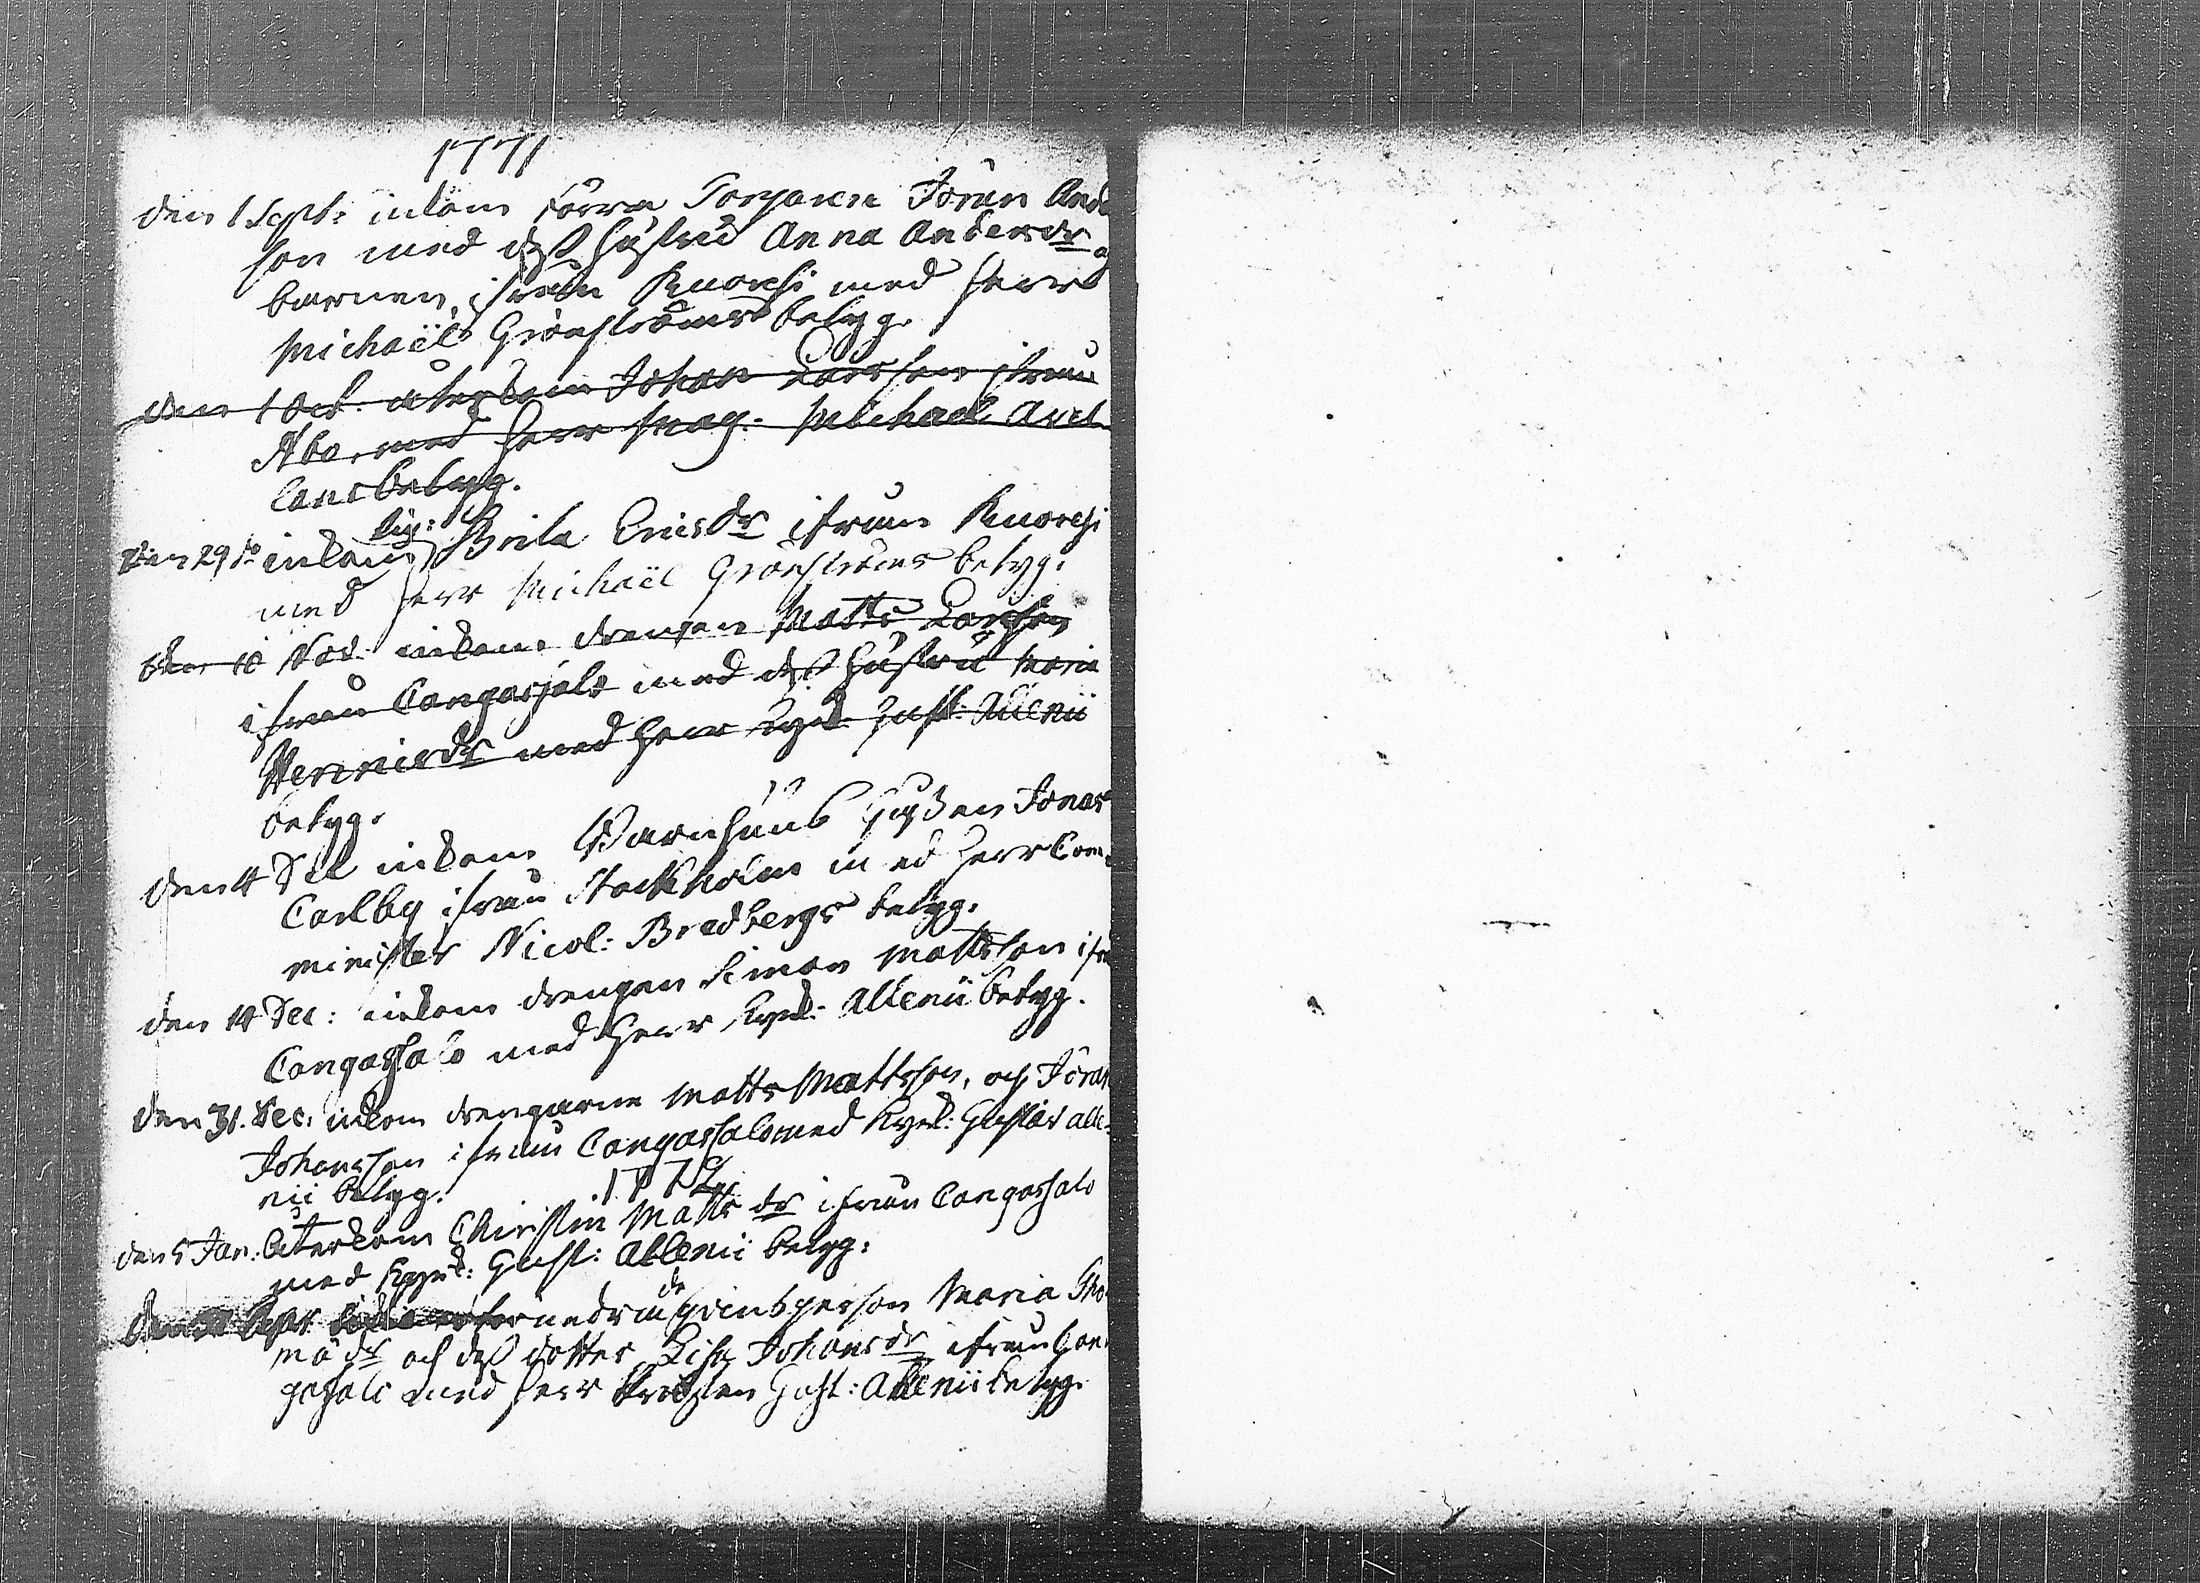 1771
den 1 Sept: inkom förra Torparen Jöran Ander
son med dess hustru Anna Andersdr o
barnen, ifrån Kuorehi med herr
Michaël Grönströms betyg.
den 1 Oct. återkom Johan Larsson ifrån
Åbo, med Herr Mag. Michael Avel
lans betyg.
den 29 do inkom pig: Brita Ericsdr ifrån Kuorehi
med Herr Michaël Grönströms betyg.
den 10 Nov. inkom drengen Matts Larsson
ifrån Cangasala med dess hustru Maria
Henricsdr med Herr Kyrk: Gust: Allenii
betyg.
den 4 Dec inkom Barnhuus Gossen Jonas
Carlby ifrån Stockholm med Herr Com-
minister Nicol: Bredbergs betyg.
den 14 Dec: inkom drengen Simon Mattsson ifrå
Cangassalo med Herr Kyrk: Allenii betyg.
den 31. Dec: inkom drengarne Matts Mattsson, och Jöran
Johansson ifrån Cangassalo med Kyrk: Gustav Alle-
nii betyg.
1772
den 5 Jan: återkom Christin Matts dr ifrån Cangassalo
med Kyrk: Gust: Allenii betyg:
qvinsperson Maria Tho-
mædr och dess dotter Lisa Johansdr ifrån Can-
gasala med Herr Gust: Allenii betyg.